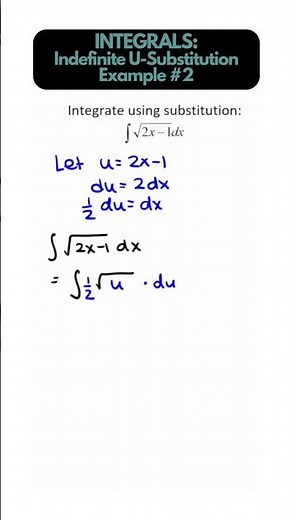 INTEGRALS:
Indefinite U-Substitution
Example #2
Integrate using substitution:
∫√2x−1dx
Let u = 2x-1
du = 2dx
½ du = dx
∫√2x-1 dx
= ∫½√u · du